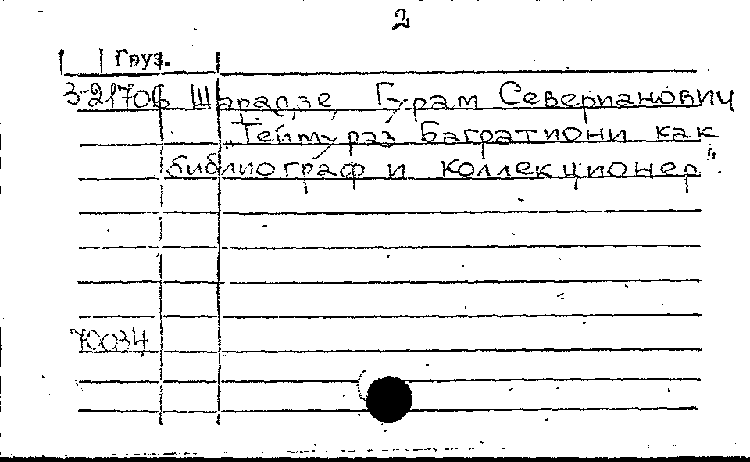 2
Груз.
3-21706 Шарадзе Гурам Северианович
"Теймураз Багратиони как
библиограф и коллекционер".
70034